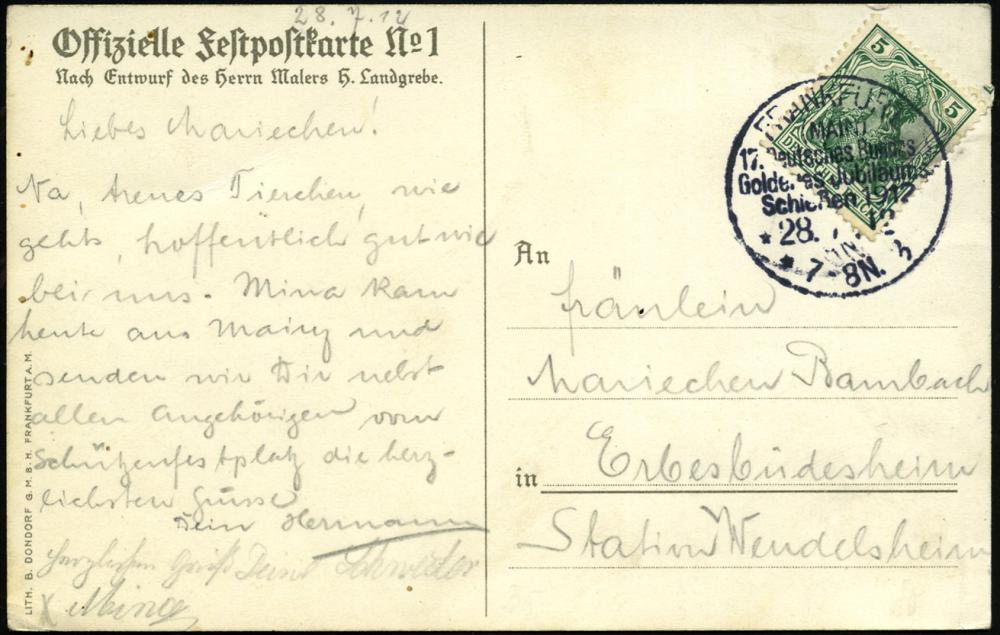 28.7.12
Offizielle Festpostkarte No 1
Nach Entwurf des Herrn Malers H. Landgrebe.
Liebes Mariechen!
Na, treues Tierchen, wie
gehts, hoffentlich gut wie
bei uns. Mina kam
heute aus Mainz und
senden wir Dir nebst
allen Angehörigen vom
Schützenfestplatz die herz-
lichsten Grüsse
Dein Hermann
Herzlichen Gruß Deine Schwester
Mina
LITH. B. DONDORF G.M.B.H. FRANKFURT A.M.
5
5
FRANKFURT
MAIN
17. Deutsches Bundes
Goldenes Jubiläums
Schießen 1912
* 28. 7. 12
* 7-8N. b
An
Fräulein
Mariechen Bambach
in Erbesbüdesheim
Station Wendelsheim